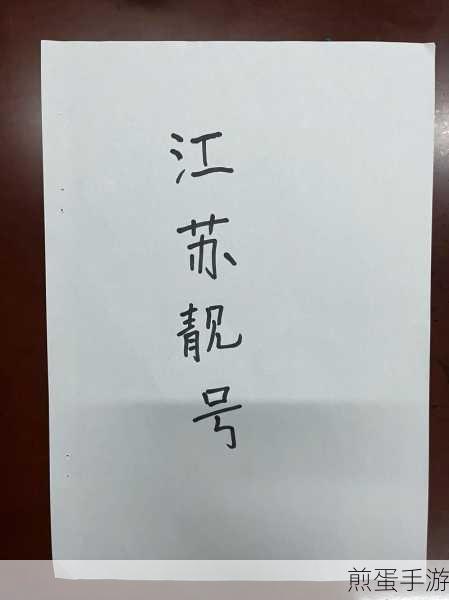 江苏靓号
煎蛋手游